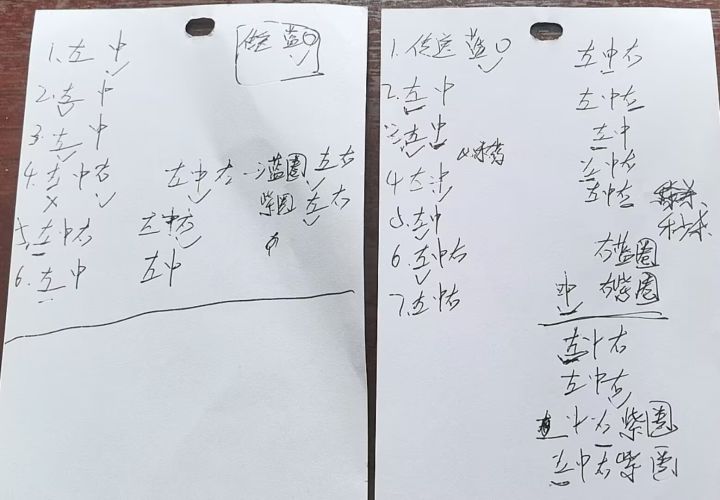 传送 蓝〇
1. 左 中
2. 左 中
3. 左 中
4. 左 中 右 左中右 →蓝圈 左右
紫圈 左右
5. 左中右 左中右
中
6. 左 中 左中
1. 传送 蓝〇 左中右
2. 左 中 左中右
3. 左 中 左中
4 左 中 左中右
左中右
秒杀
5. 左中
6. 左中右 右蓝圈
7. 左中右 中 右紫圈
左中右
左中右
左中右 紫圈
左中右紫圈